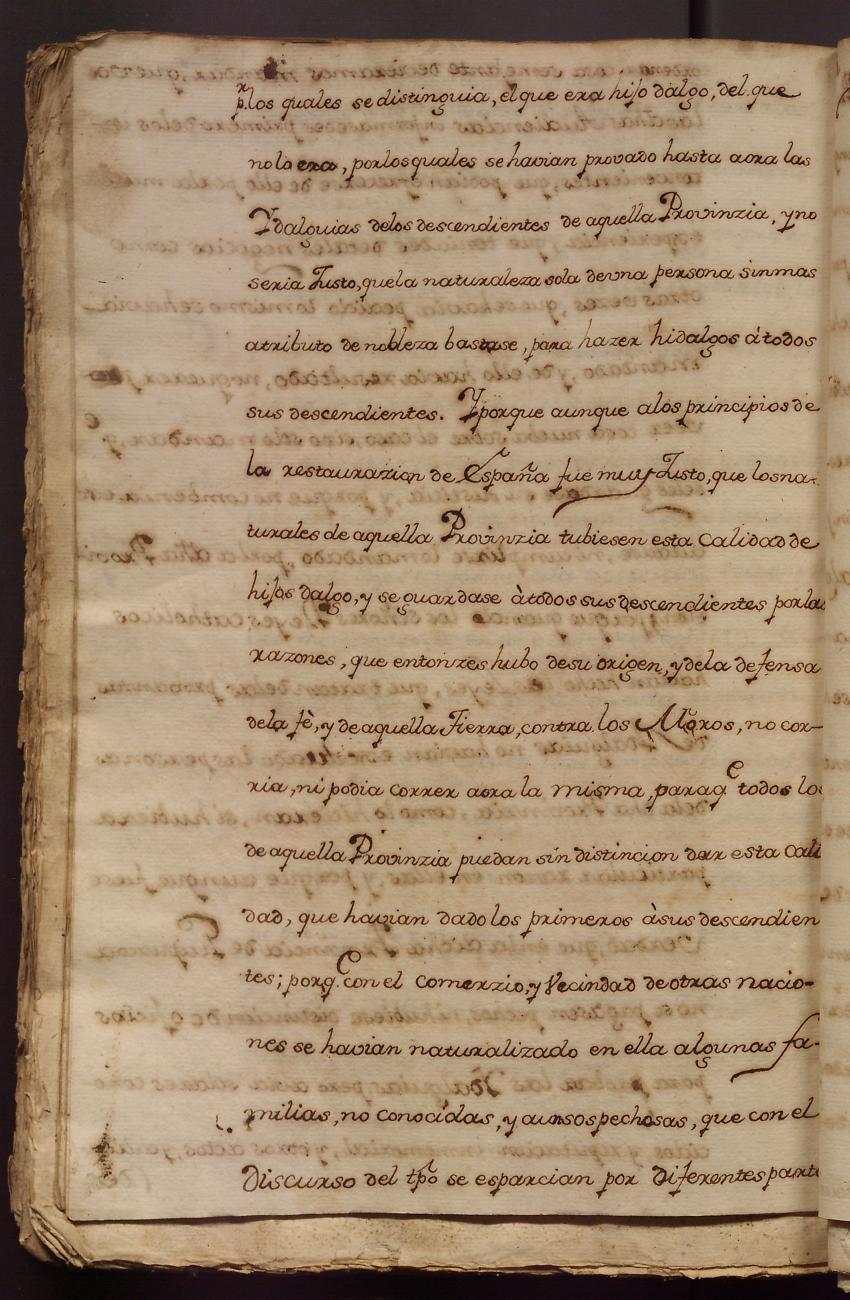 pr. los quales se distinguia, el que era hijo dalgo, del que
no lo era, por los quales se havian provado hasta aora las
Ydalguias delos descendientes de aquella Provinzia, y no
seria Justo, que la naturaleza sola de vna persona sin mas
atributo de nobleza bastase, para hazer hidalgos à todos
sus descendientes. Y porque aunque alos principios de
la restaurazion de España fue muy Justo, que los na-
turales de aquella Provinzia tubiesen esta Calidad de
hijos dalgo, y se guardase à todos sus descendientes por las
razones, que entonzes hubo de su origen, y dela defensa
dela fè, y de aquella Tierra, contra los Moros, no cor-
ria, ni podia correr aora la misma, para qe todos los
de aquella Provinzia puedan sin distincion dar esta Cali
dad, que havian dado los primeros à sus descendien
tes; porq.e con el Comerzio, y Vecindad de otras nacio-
nes se havian naturalizado en ella algunas fa-
milias, no conocidas, y aun sospechosas, que con el
Discurso del tpõ se esparcian por diferentes parte